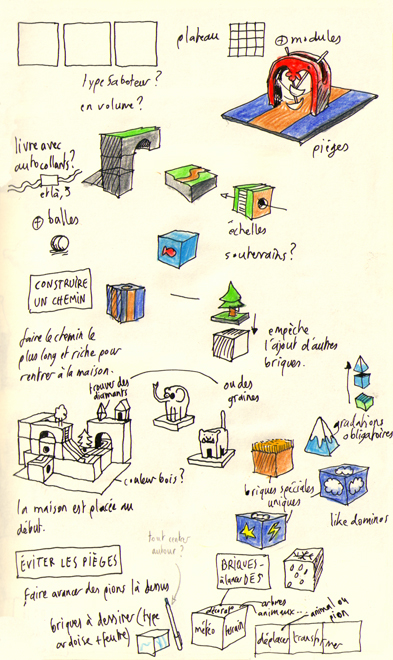 plateau
⊕ modules
type Saboteur?
en volume?
pièges
livre avec
autocollants?
et là, 3
⊕ balles
échelles
souterrains?
CONSTRUIRE
UN CHEMIN
faire le chemin le
plus long et riche pour
rentrer à la maison.
empêche
l'ajout d'autres
briques.
trouver des
diamants
ou des
graines
gradations
obligatoires
couleur bois?
briques spéciales
uniques
la maison est placée au
début.
like dominos
tout
autour?
ÉVITER LES PIÈGES
BRIQUES-
à lancer DÉS
faire avancer des pions là dessus
briques à dessiner (type
ardoise + feutre)
découpe
météo
terrain
arbres
animaux...
animal ou
pion
déplacer
transformer